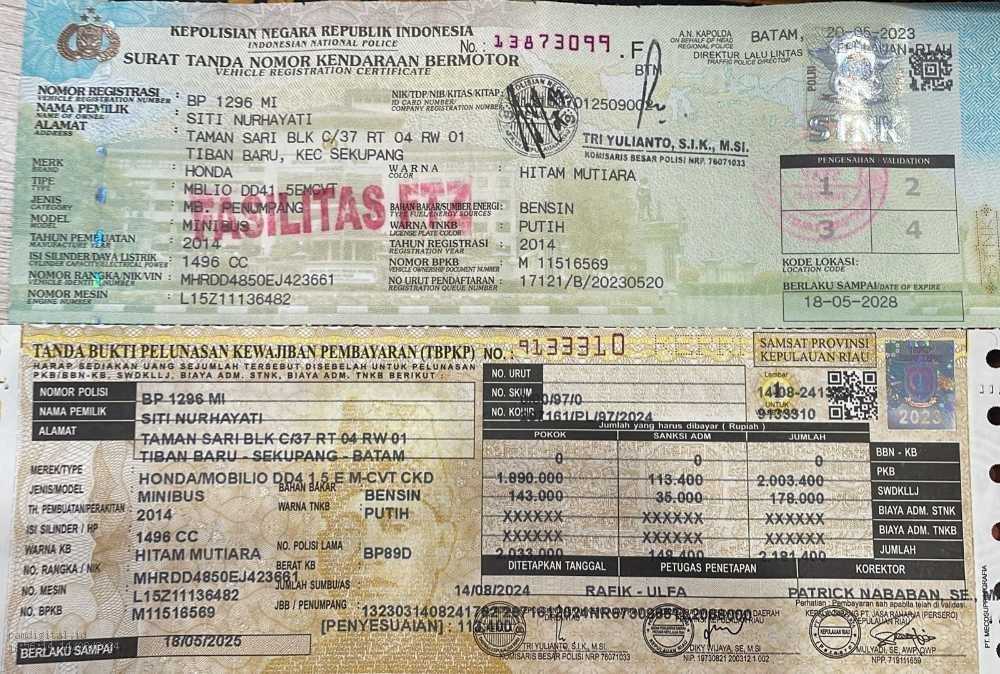 KEPOLISIAN NEGARA REPUBLIK INDONESIA
INDONESIAN NATIONAL POLICE
No.: 13873099 .F
SURAT TANDA NOMOR KENDARAAN BERMOTOR
VEHICLE REGISTRATION CERTIFICATE
BTN
A.N. KAPOLDA
ON BEHALF OF HEAD
REGIONAL POLICE
BATAM, 20-06-2023
KEPULAUAN RIAU
DIREKTUR LALU LINTAS
TRAFFIC POLICE DIRECTOR
POLRI
STNK
NOMOR REGISTRASI : BP 1296 MI
VEHICLE REGISTRATION NUMBER
NIK/TDP/NIB/KITAS/KITAP:
ID CARD NUMBER/
COMPANY REGISTRATION NUMBER
NAMA PEMILIK : SITI NURHAYATI
NAME OF OWNER
ALAMAT : TAMAN SARI BLK C/37 RT 04 RW 01
ADDRESS
TIBAN BARU, KEC SEKUPANG
TRI YULIANTO, S.I.K., M.SI.
KOMISARIS BESAR POLISI NRP. 76071033
MERK : HONDA
BRAND
WARNA : HITAM MUTIARA
COLOR
TIPE : MBLIO DD41 5EMCVT
TYPE
JENIS : MB. PENUMPANG
CATEGORY
BAHAN BAKAR/SUMBER ENERGI : BENSIN
TYPE FUEL/ENERGY SOURCES
MODEL : MINIBUS
MODEL
WARNA TNKB : PUTIH
LICENSE PLATE COLOR
TAHUN PEMBUATAN : 2014
MANUFACTURE YEAR
TAHUN REGISTRASI : 2014
REGISTRATION YEAR
ISI SILINDER/DAYA LISTRIK : 1496 CC
CYLINDER CAPACITY/ELECTRICAL POWER
NOMOR BPKB : M 11516569
VEHICLE OWNERSHIP DOCUMENT NUMBER
NOMOR RANGKA/NIK/VIN : MHRDD4850EJ423661
VEHICLE IDENTITY NUMBER
NO URUT PENDAFTARAN : 17121/B/20230520
REGISTRATION QUEUE NUMBER
NOMOR MESIN : L15Z11136482
ENGINE NUMBER
FASILITAS FTZ
PENGESAHAN / VALIDATION
1 2
3 4
KODE LOKASI:
LOCATION CODE
BERLAKU SAMPAI/DATE OF EXPIRE :
18-05-2028
TANDA BUKTI PELUNASAN KEWAJIBAN PEMBAYARAN (TBPKP) NO. : 9133310
HARAP SEDIAKAN UANG SEJUMLAH TERSEBUT DISEBELAH UNTUK PELUNASAN
PKB/BBN-KB, SWDKLLJ, BIAYA ADM. STNK, BIAYA ADM. TNKB BERIKUT :
SAMSAT PROVINSI
KEPULAUAN RIAU
2023
Lembar
1
UNTUK
9133310
NO. URUT
NO. SKUM
NO. KOHIR
NOMOR POLISI BP 1296 MI
NAMA PEMILIK SITI NURHAYATI
ALAMAT TAMAN SARI BLK C/37 RT 04 RW 01
TIBAN BARU - SEKUPANG - BATAM
Jumlah yang harus dibayar ( Rupiah )
POKOK SANKSI ADM JUMLAH
0 0 0 BBN - KB
1.890.000 113.400 2.003.400 PKB
143.000 35.000 178.000 SWDKLLJ
XXXXXX XXXXXX XXXXXX BIAYA ADM. STNK
XXXXXX XXXXXX XXXXXX BIAYA ADM. TNKB
2.033.000 148.400 2.181.400 JUMLAH
MEREK/TYPE : HONDA/MOBILIO DD4 1.5 E M-CVT CKD
JENIS/MODEL : MINIBUS
BAHAN BAKAR : BENSIN
TH. PEMBUATAN/PERAKITAN : 2014
WARNA TNKB : PUTIH
ISI SILINDER / HP : 1496 CC
WARNA KB : HITAM MUTIARA
NO. POLISI LAMA : BP89D
NO. RANGKA / NIK : MHRDD4850EJ423661
BERAT KB :
NO. MESIN : L15Z11136482
JUMLAH SUMBU/AS :
NO. BPKB : M11516569
JBB / PENUMPANG :
BERLAKU SAMPAI 18/05/2025
DITETAPKAN TANGGAL PETUGAS PENETAPAN KOREKTOR
14/08/2024 RAFIK - ULFA PATRICK NABABAN, SE., M
Perhatian : Pembayaran sah apabila telah di validasi
[PENYESUAIAN] : 113.400
PT. JASA RAHARJA (PERSERO)
KEPULAUAN RIAU
TRI YULIANTO, S.I.K, M.SI
KOMISARIS BESAR POLISI NRP 76071033
DIKY WIJAYA, SE, M.SI
NIP. 19730821 200312 1 002
MULYADI, SE, AWP, QWP
NPP. 719111659